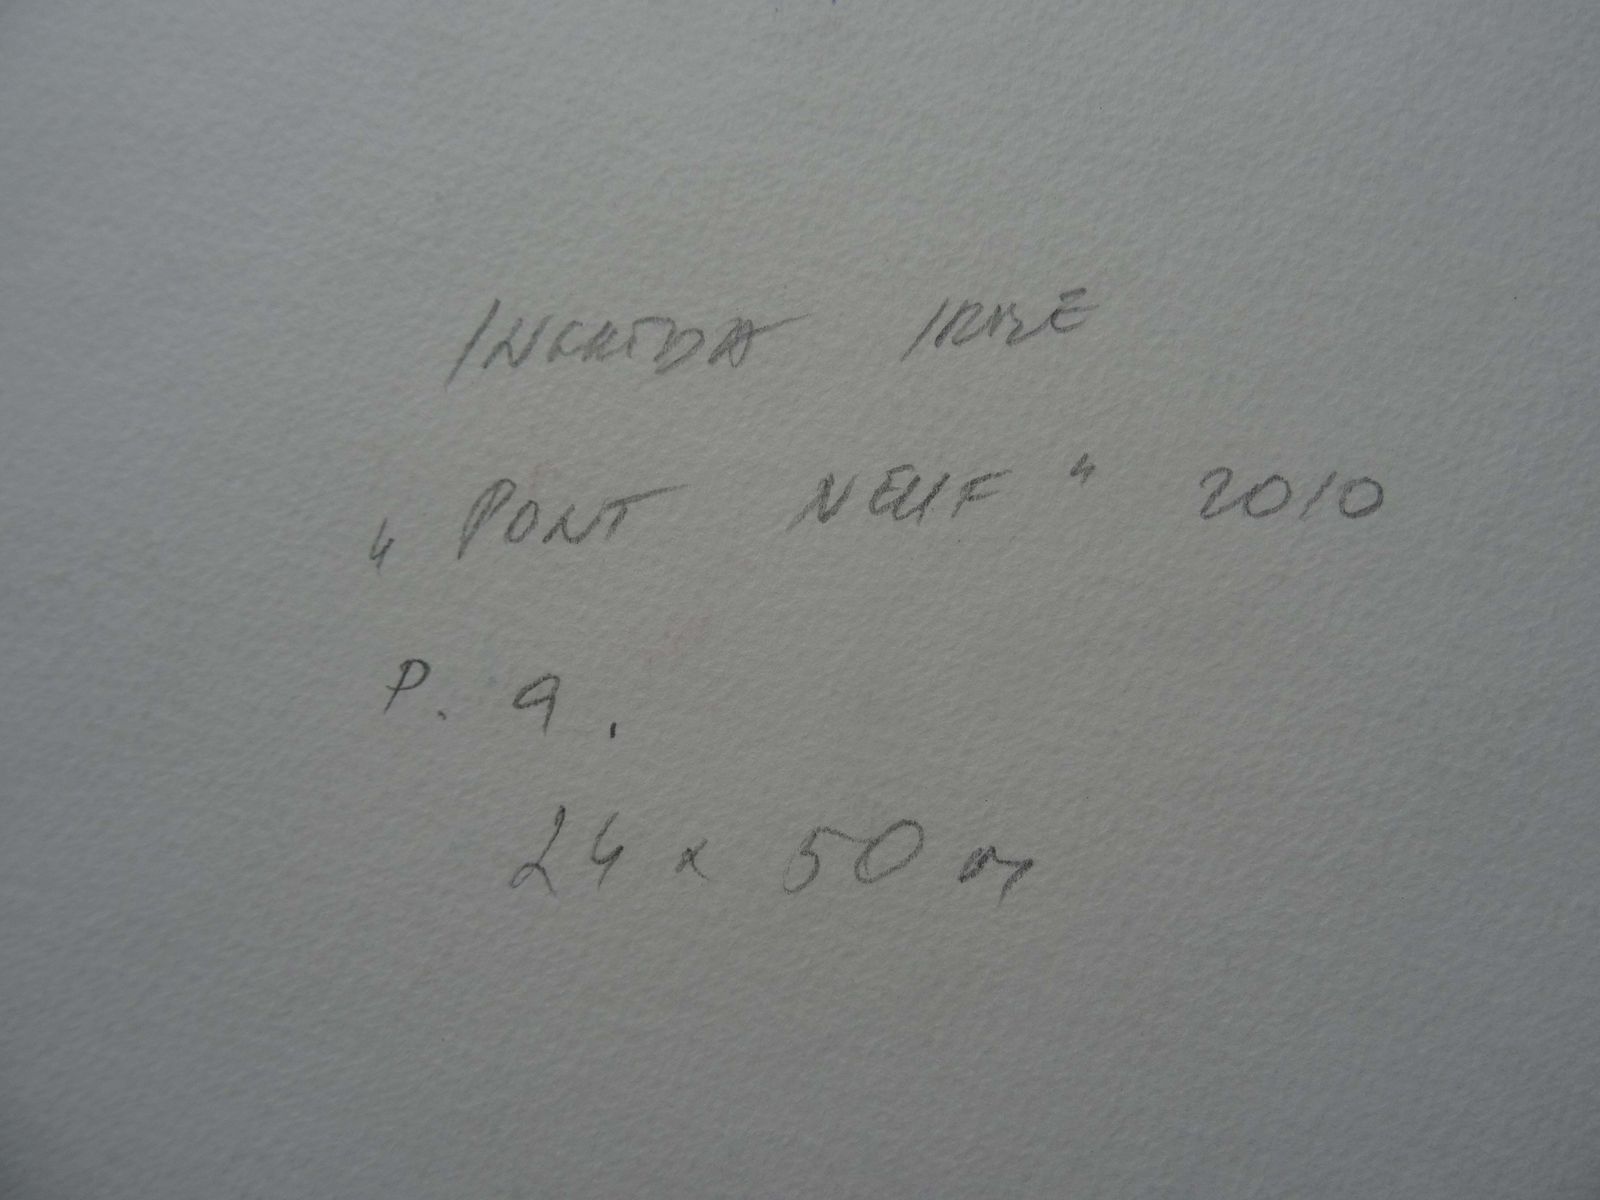 INGRIDA IRBE
„PONT NEUF" 2010
P. a.
24 x 50 cm